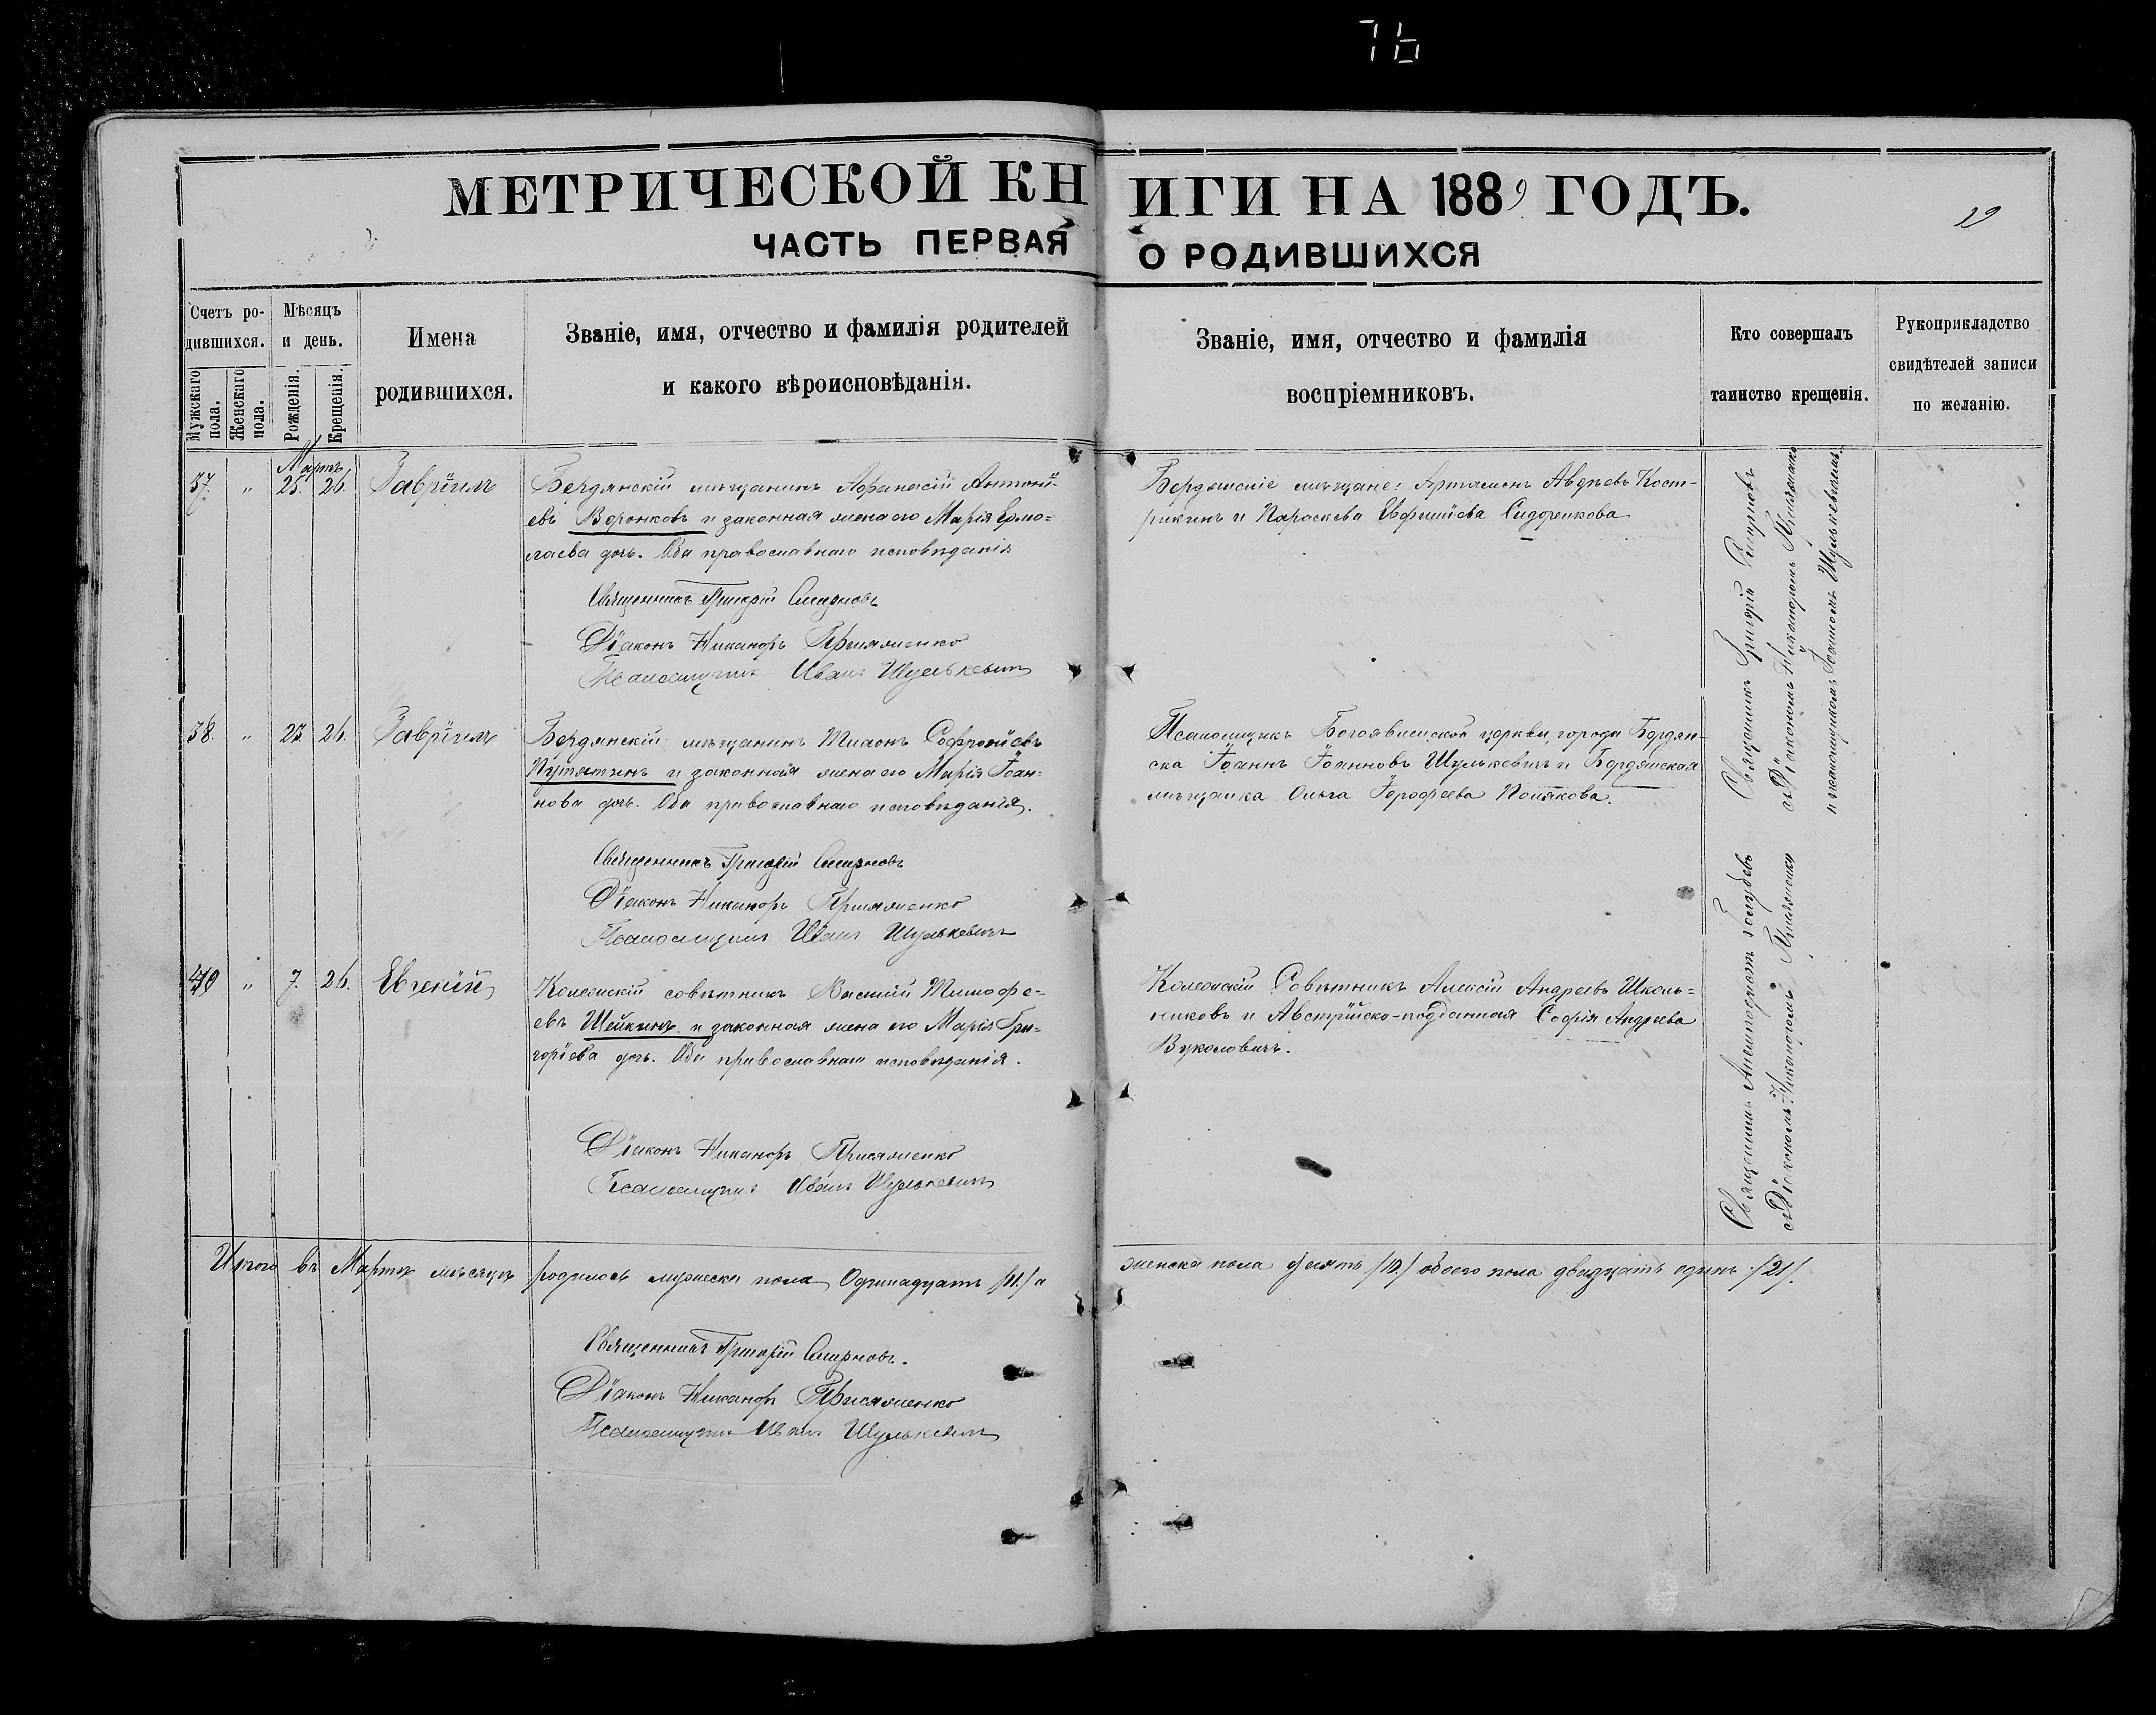 76
МЕТРИЧЕСКОЙ КНИГИ НА 1889 ГОДЪ.
29
ЧАСТЬ ПЕРВАЯ О РОДИВШИХСЯ
Счетъ ро-
дившихся.
Мужскаго пола.
Женскаго пола.
Мѣсяцъ
и день.
Рожденія.
Крещенія.
Имена
родившихся.
Званіе, имя, отчество и фамилія родителей
и какого вѣроисповѣданія.
Званіе, имя, отчество и фамилія
воспріемниковъ.
Кто совершалъ
таинство крещенія.
Рукоприкладство
свидѣтелей записи
по желанію.
Мартъ
37. " 25. 26. Гавріилъ
Бердянскій мѣщанинъ Афанасій Антоні-
евъ Воронковъ и законная жена его Марія Ермо=
лаева дочь. Оба православнаго исповѣданія
Священникъ Григорій Смирновъ
Діаконъ Никаноръ Присяженко
Псаломщикъ Иванъ Шулькевичъ
Бердянскіе мѣщане: Артамонъ Авдѣевъ Кост-
рикинъ и Параскева Евфиміева Сидоренкова
Священникъ Григорій Смирновъ
съ Діакономъ Никаноромъ Присяженко
и псаломщикомъ Іоанномъ Шулькевичемъ.
38. " 23. 26. Гавріилъ
Бердянскій мѣщанинъ Софроніевъ
Путятинъ и законная жена его Марія Іоан-
нова дочь. Оба православнаго исповѣданія.
Священникъ Григорій Смирновъ
Діаконъ Никаноръ Присяженко
Псаломщикъ Иванъ Шулькевичъ
Псаломщикъ церкви, города Бердян-
ска Іоаннъ Іоанновъ Шулькевичъ и Бердянская
мѣщанка Ольга Полякова.
39 " 7. 26. Евгеній
Колежскій совѣтникъ Василій Тимофе-
евъ Шейкинъ и законная жена его Марія Гри-
горіева дочь. Оба православнаго исповѣданія.
Діаконъ Никаноръ Присяженко
Псаломщикъ Иванъ Шулькевичъ
Колежскій Совѣтникъ Алексій Андреевъ Школь=
никовъ и Австрійско-подданная Софія Андреева
Вуколовичъ.
Священникъ Голубевъ
съ Діакономъ Никаноромъ Присяженко
Итого въ Мартѣ мѣсяцѣ родилось мужеска пола Одинадцать /11./ а женска пола десять /10./ обоего пола двадцать одинъ /21/.
Священникъ Григорій Смирновъ.
Діаконъ Никаноръ Присяженко
Псаломщикъ Иванъ Шулькевичъ